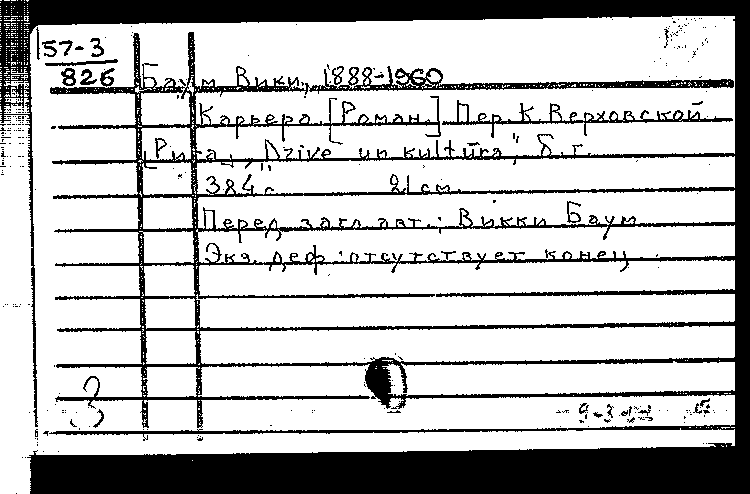 57-3
826
Баум, Вики, 1888-1960
Карьера. [Роман.] Пер. К. Верховской
[Рига], „Dzive un kultūra“, б. г.
384 с. 21 см.
Перед загл. авт.: Викки Баум
Экз. деф: отсутствует конец
3